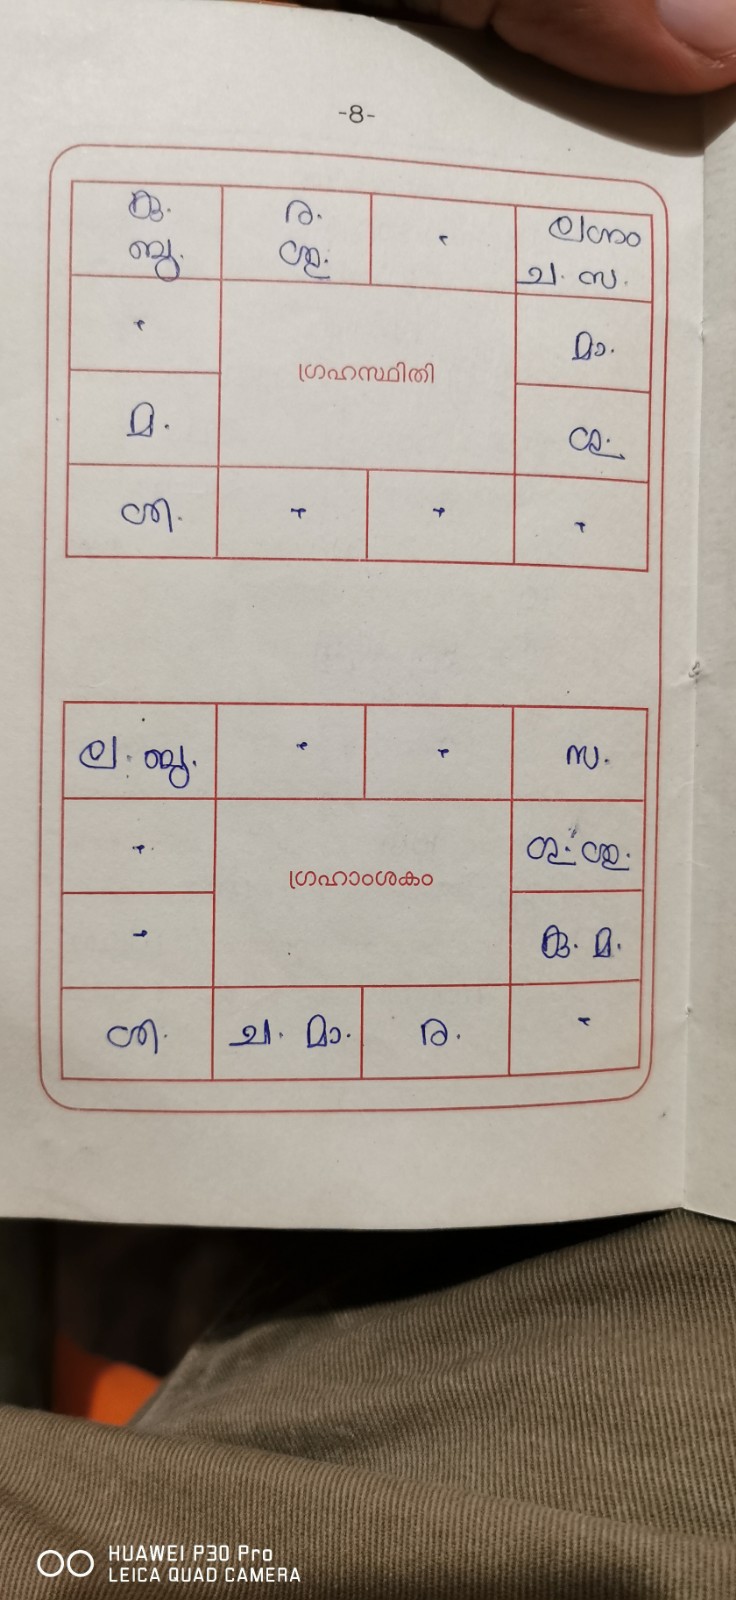 -8-
കു. ര. ലഗ്നം
ബു. ശു. ച. സ.
മാ.
ഗ്രഹസ്ഥിതി
മ.
ശി.
ല. ബു. സ.
ഗ്രഹാംശകം
കു. മ.
ശി. ച. മാ. ര.
HUAWEI P30 Pro
LEICA QUAD CAMERA